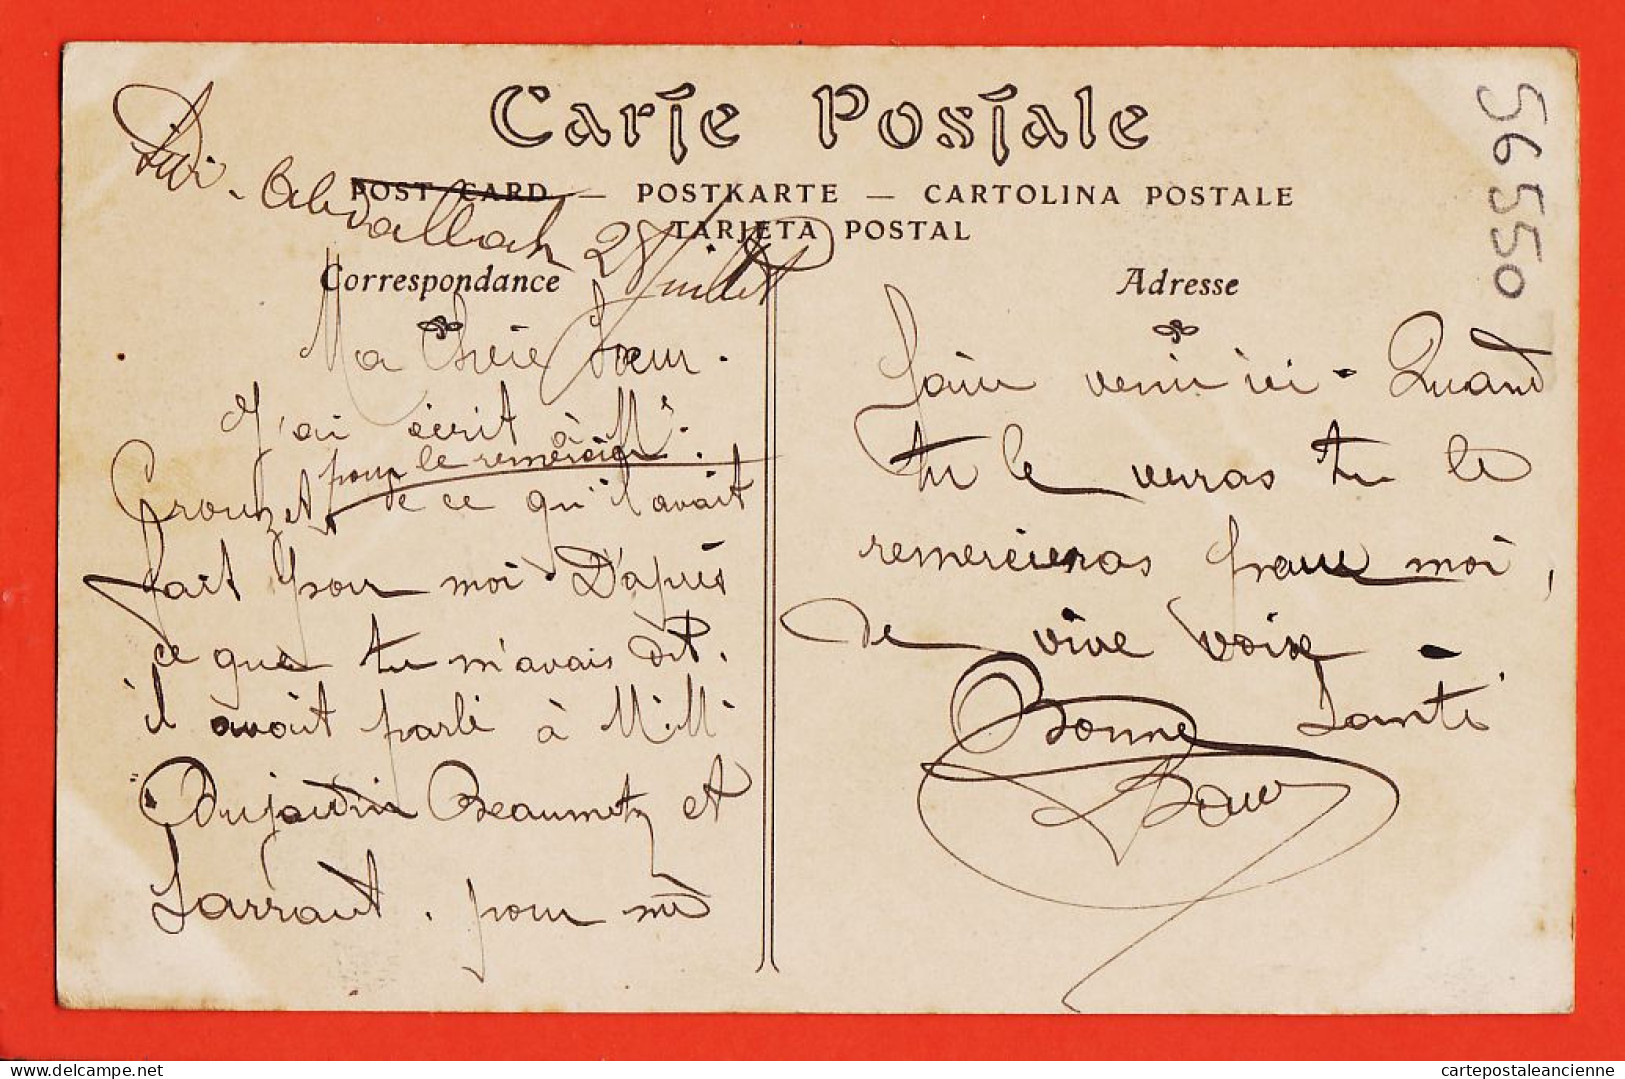 Carte Postale
POST CARD — POSTKARTE — CARTOLINA POSTALE
TARJETA POSTAL
Sidi-Abdallah 28 Juillet
Correspondance
Ma Chère Sœur.
J'ai écrit à Mr
pour le remercier.
Grouzet de ce qu'il avait
fait pour moi. D'après
ce que tu m'avais dit.
il avait parlé à M.M.
Dujardin Beaumetz et
Sarraut. pour me
Adresse
faire venir ici. Quand
tu le verras tu le
remercieras pour moi,
de vive voix -
Bonne Santé
56550
delcampe.net
cartepostaleancienne